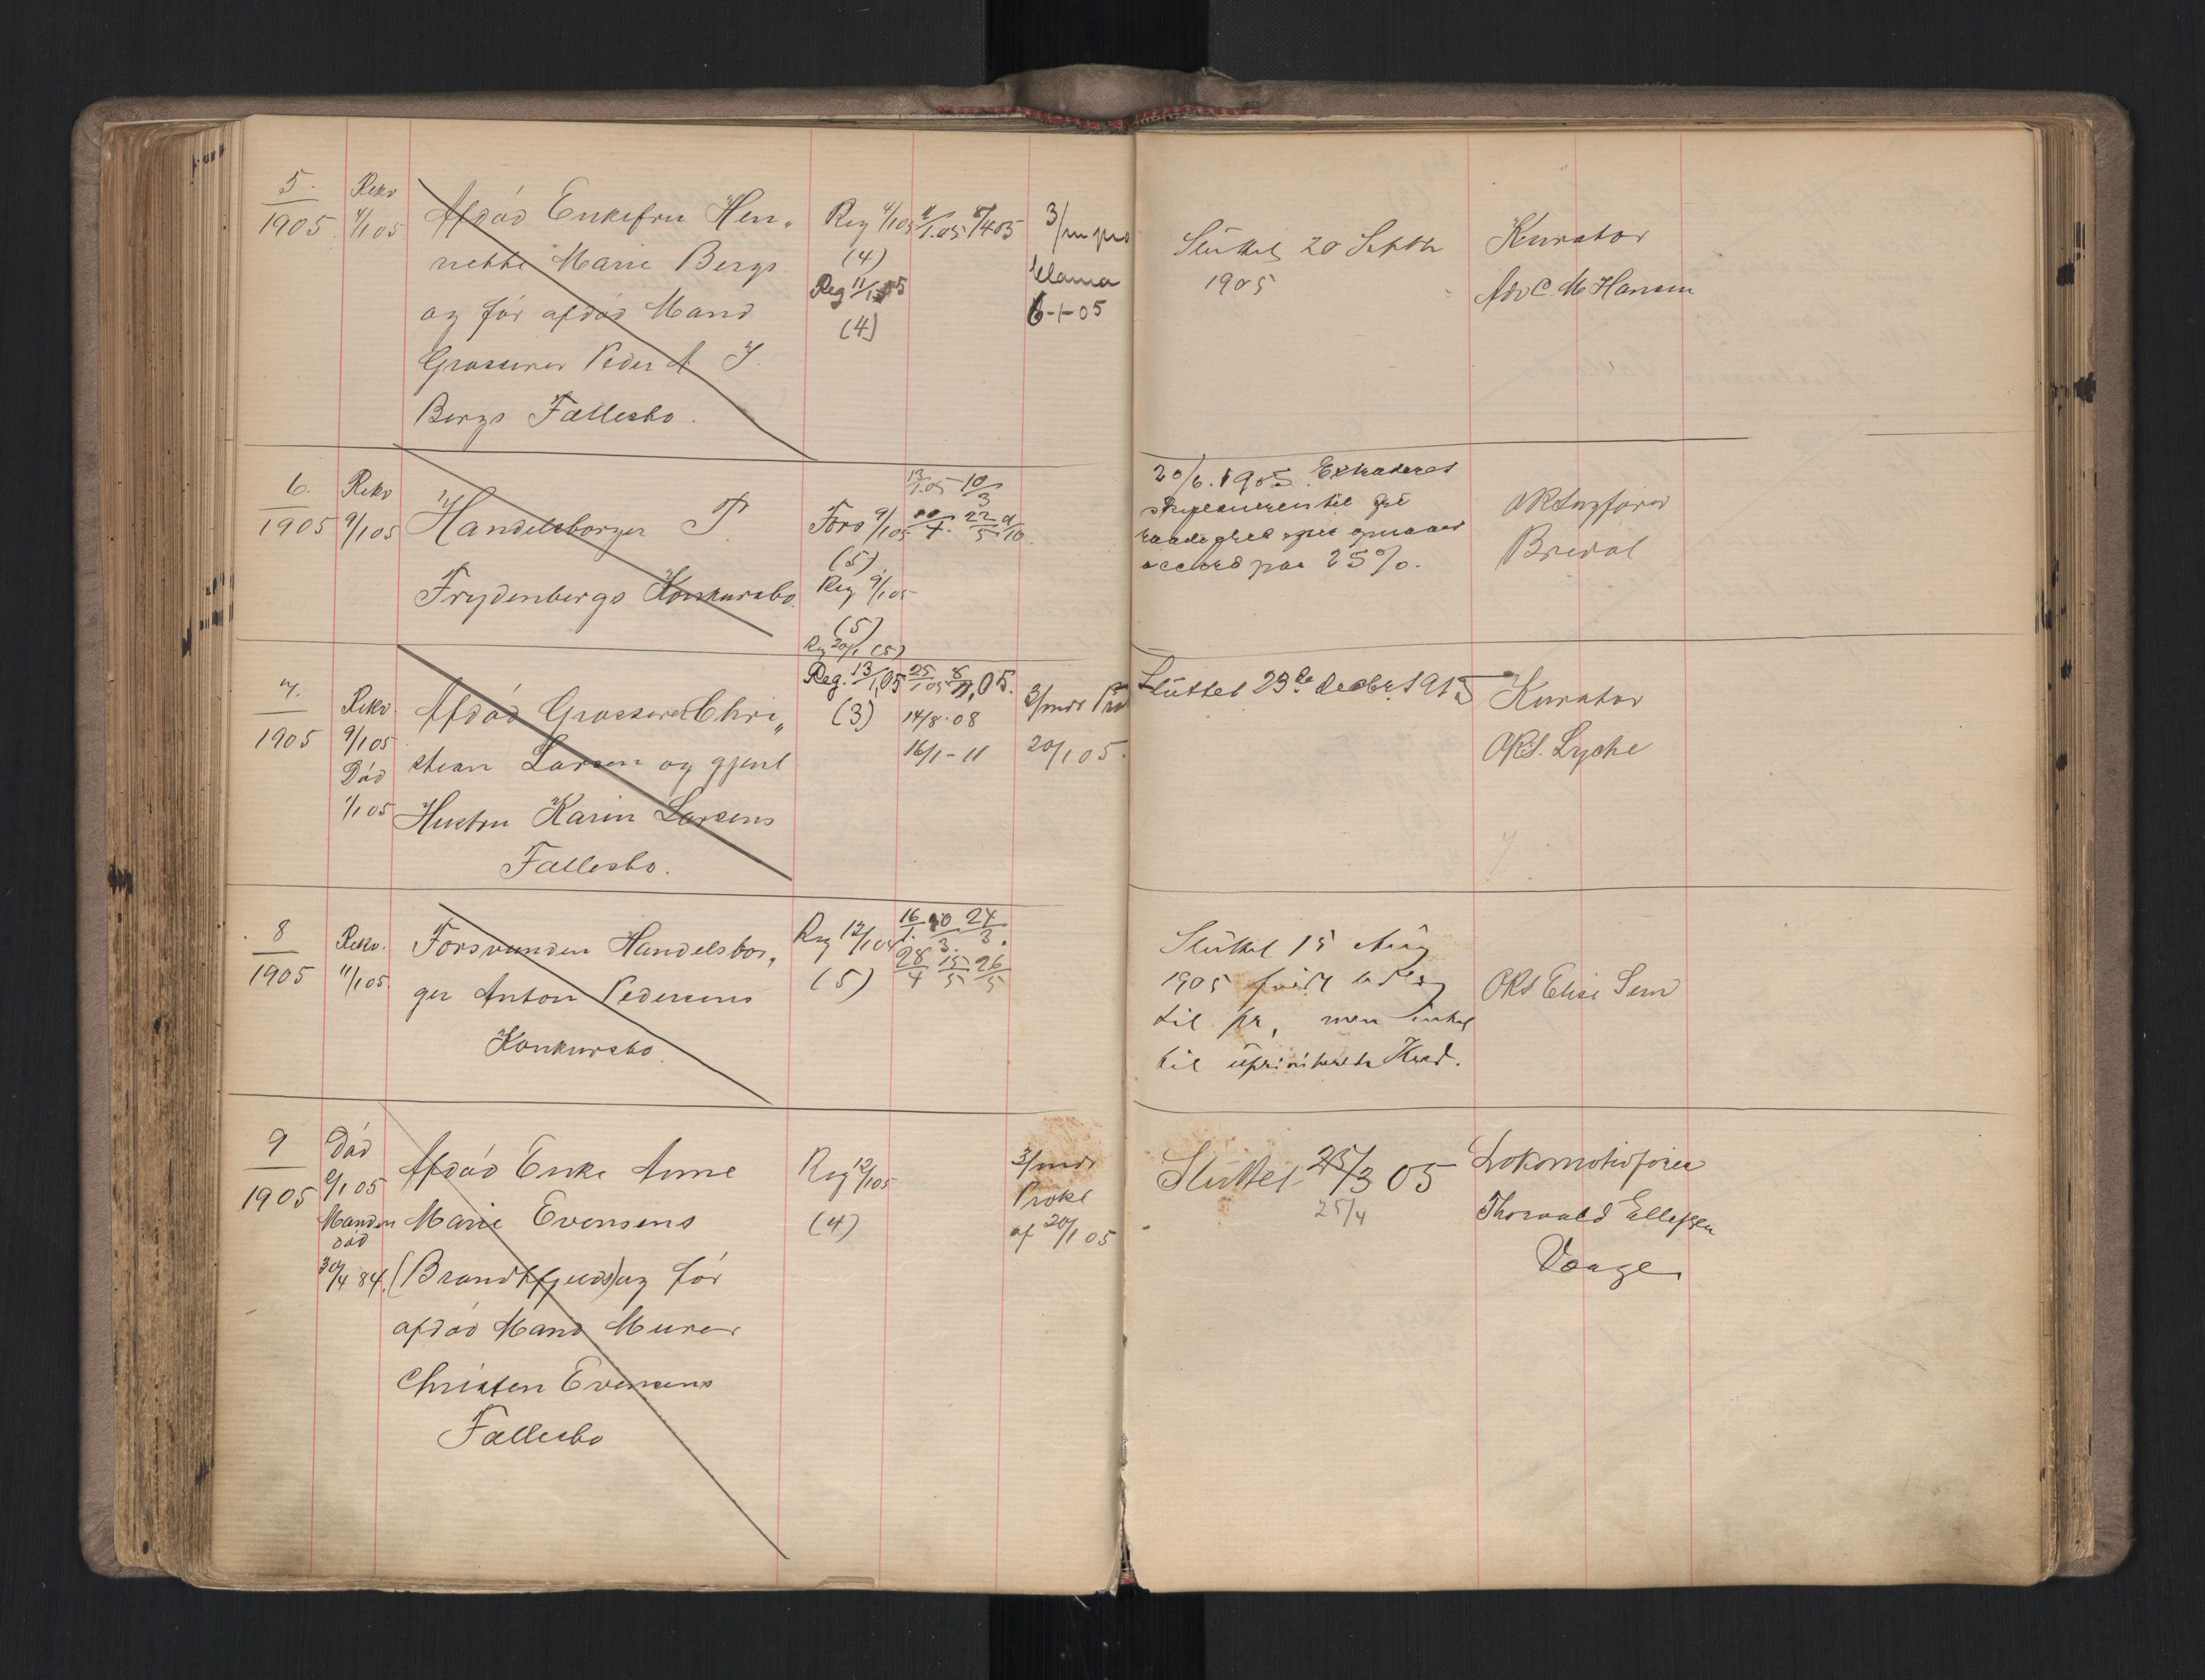 5.
1905
Rekv
4/1 05
Afdød Enkefru Hen„
riette Marie Bergs
og før afdød Mand
Grosserer Peder A J.
Bergs Fællesbo.
Reg 4/1 05
(4)
Reg 11/1 05
(4)
4/1.05 8/4 05
3/m pro
clama
6-1-05
Sluttet 20 Septbr
1905
Kurator
Adv C. M Hansen
6.
1905
Rekv
9/1 05
Handelsborger P.
Frydenbergs Konkursbo.
Fors 9/1 05
(5)
Reg 9/1 05
(5)
Reg 20/1 (5)
13/1.05 10/3
22/5
20/6.1905. Extraderet
accord paa 25%.
ORSagfører
Bredal
7.
1905
Rekv
9/1 05
Død
1/1 05
Afdød Grosserer Chri„
stian Larsen og gjenl
Hustru Karin Larsens
Fællesbo.
Reg. 13/1 05
(3)
25/1 05 8/11,05.
14/8.08
16/1-11
3/mdr Pro
20/1 05.
Sluttet 23de Decbr. 1915
Kurator
ORS. Lyche
8
1905
Rekv.
11/1 05
Forsvunden Handelsbor„
ger Anton Pedersens
Konkursbo.
Reg 12/1 04
(5)
16/1. 10/3. 24/3.
28/4 15/5 26/5
Sluttet 15 Aug
1905
til pr, men intet
til uprioriterede Kred.
ORS Elise Sem
9
1905
Død
2/1 05
Manden
død
30/4 84.
Afdød Enke Anne
Marie Evensens
(Brandtfjelds) og før
afdød Mand Murer
Christen Evensens
Fællesbo
Reg 12/1 05
(4)
3/mdr
Prokl
af 20/1 05
Sluttet 25/3 05
25/4
Lokomotivfører
Thorvald Ellefsen
Vaage